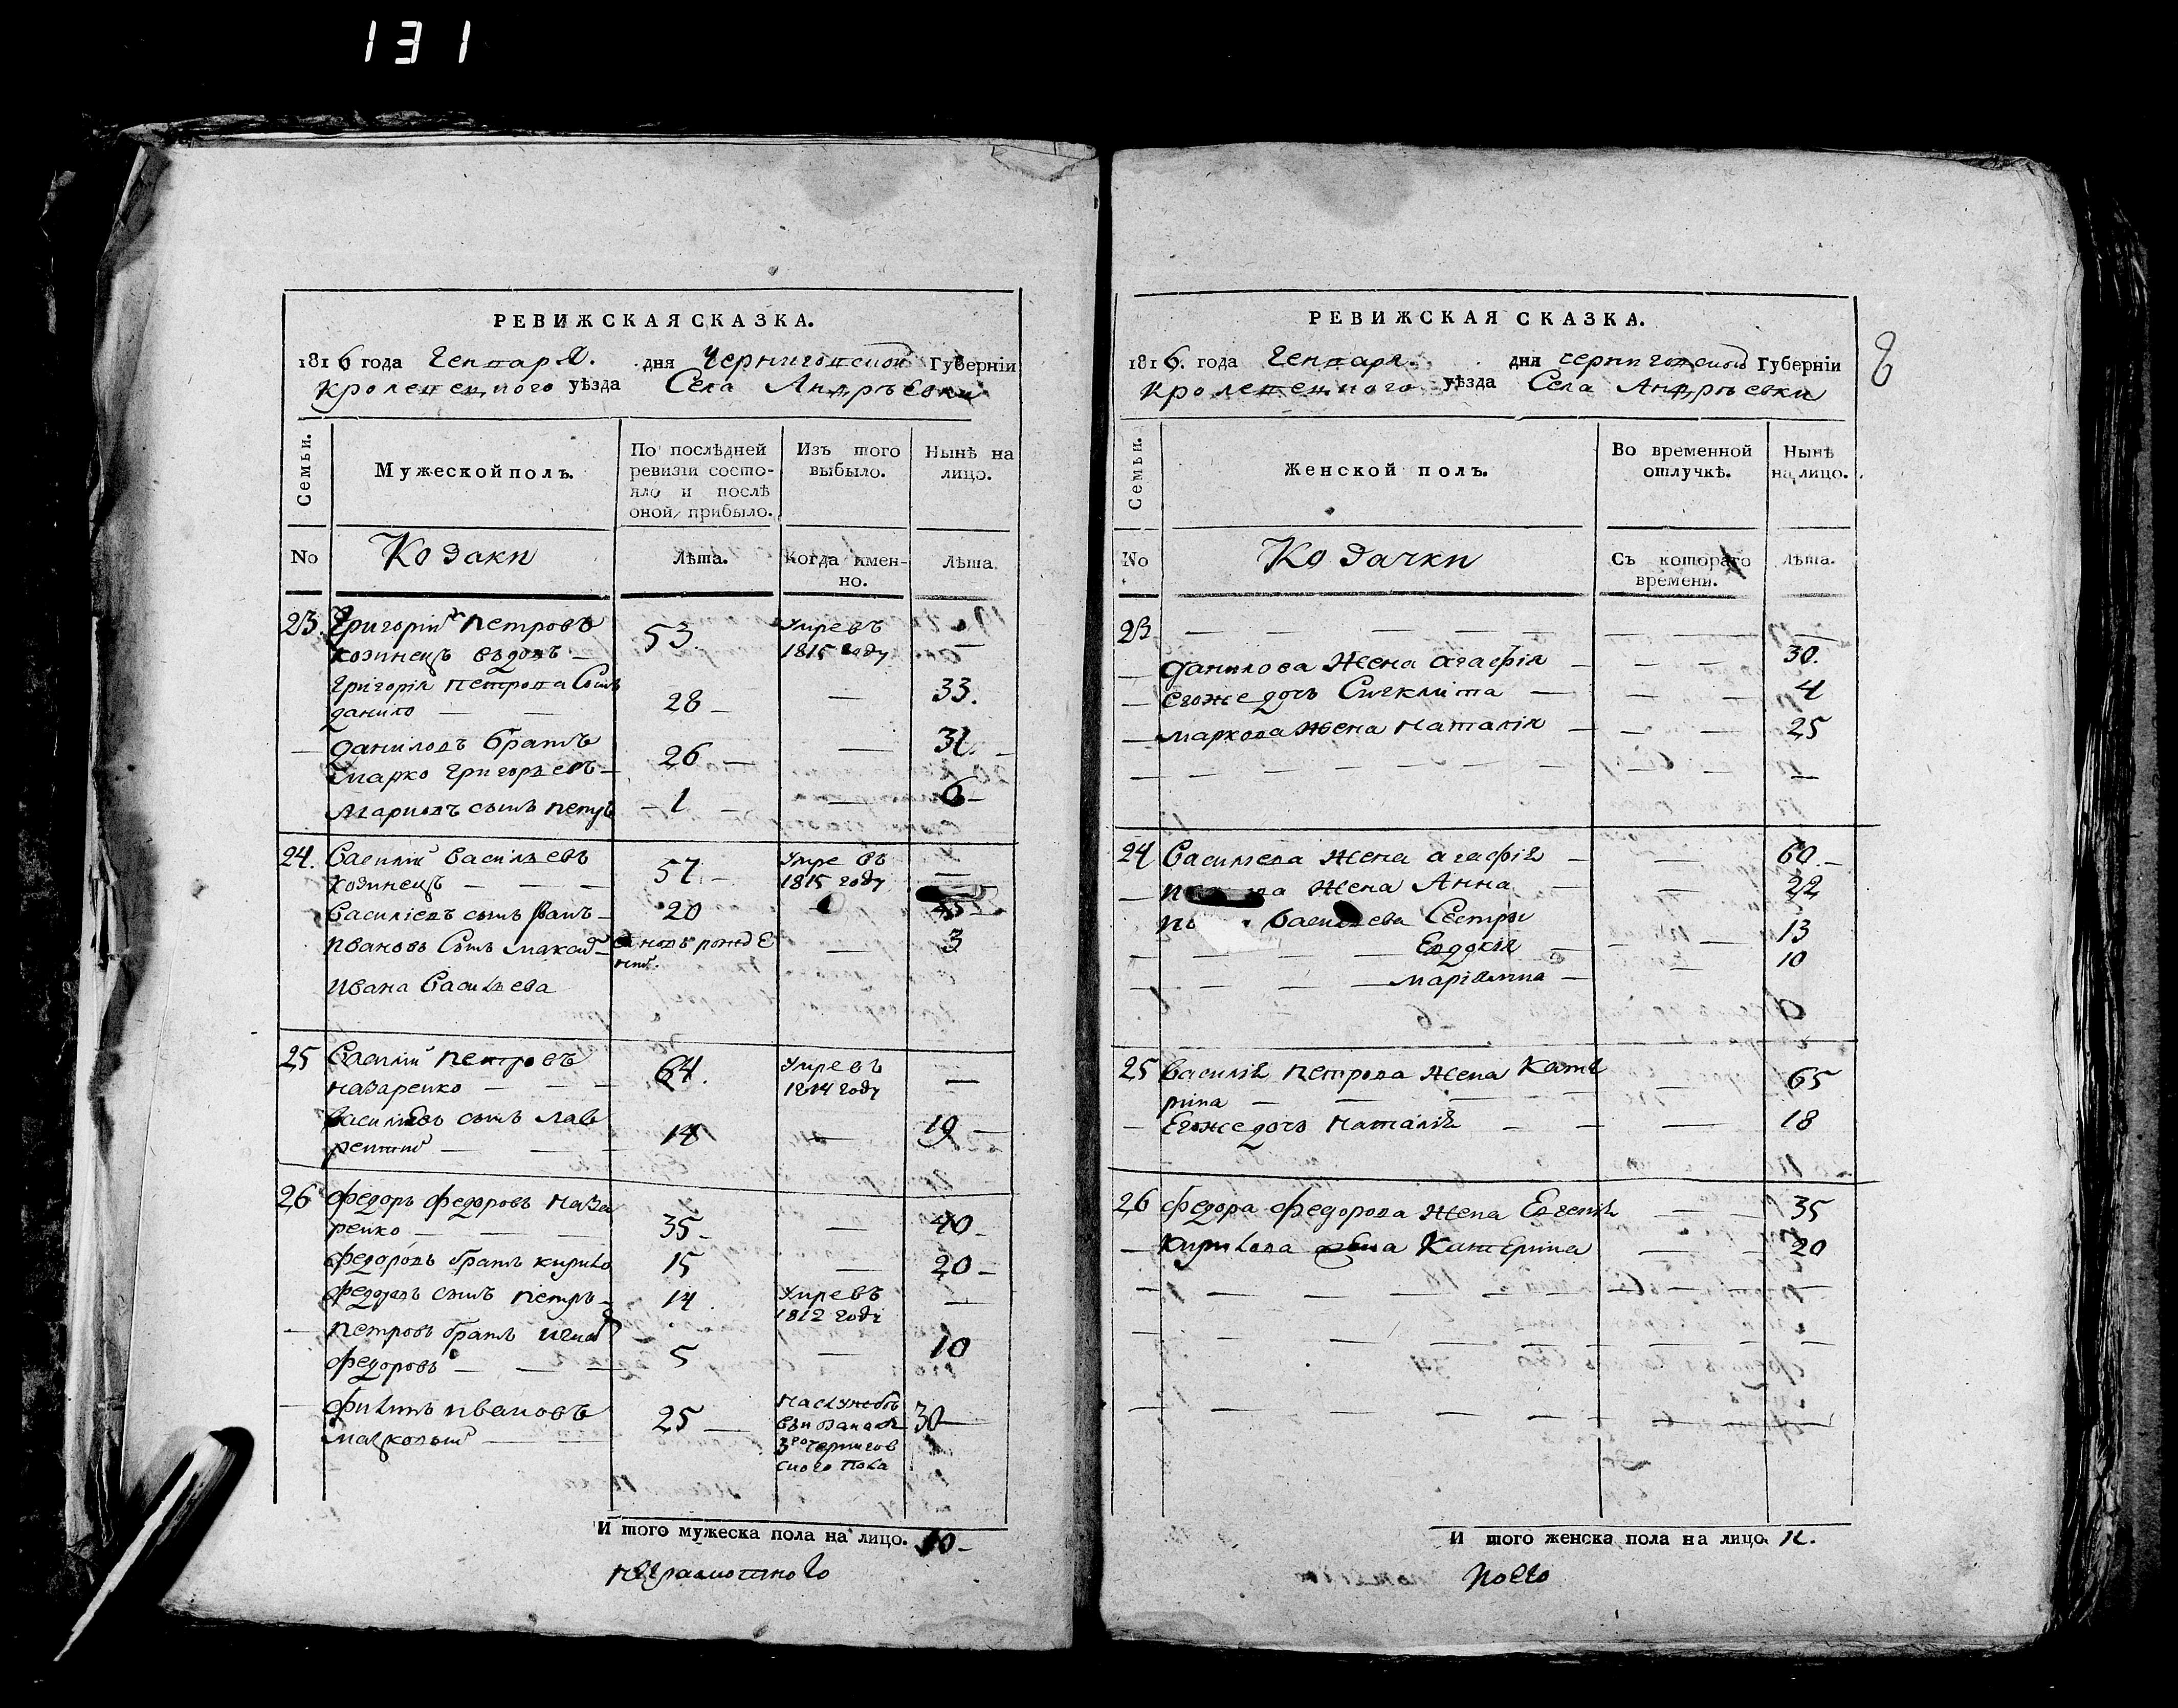 131
РЕВИЖСКАЯ СКАЗКА.
1816 года Генваря. дня Черниговской Губерніи
Кролевецкого уѣзда Села Андрѣевки
Семьи.
Мужеской полъ.
По послѣдней ревизіи состояло и послѣ оной прибыло.
Изъ того выбыло.
Нынѣ на лицо.
No
Козаки
Лѣта.
Когда имен-
но.
Лѣта.
23. Григорій Петровъ
козинецъ вдовъ — 53. Умре въ 1815 году —
Григорія Петрова Сынъ
данило — — 28 — — 33.
— даниловъ братъ
Марко Григорьевъ — 26 — —
Марковъ сынъ петръ — 1 — — 6 —
24. Василій Васильевъ
козинецъ — — — 57 — Умре въ 1815 году —
Василіевъ сынъ Иванъ — 20
Ивановъ Сынъ Макс — вновь рожде — 3
Ивана Васильева
25 Василій Петровъ
назаренко — — — 64. Умре въ 1814 году —
василіевъ сынъ лав
рентий — — — 14 — 19 —
26 Федоръ Федоровъ Наза
ренко — — — 35 — — 40 —
Федоровъ братъ кирило 15 — 20 —
Федоровъ сынъ петръ — 14 Умре въ 1812 годі —
— Петровъ братъ
Федоровъ — — — 5 — 10
— Филипъ Ивановъ 25 — 30 —
3го Чернигов
ского полка
И того мужеска пола на лицо. 10 —
РЕВИЖСКАЯ СКАЗКА.
1816. года Генваря. дня Черниговской Губерніи
Кролевецкого уѣзда Села Андрѣевки
Семьи.
Женской полъ.
Во временной отлучкѣ.
Нынѣ на лицо.
No
Козачки
Съ котораго
времени.
Лѣта.
23 — — — — — — — —
— данилова Жена агафія — — — 30.
— егоже дочь Синклита — — — 4
— маркова жена Наталія — — — 25
— — — — — — — — — —
24 Василіева Жена агафія — — 60. —
— Жена Анна — — 22
Васильева Сестры
— — — — Евдокія — — — 13
— — — — маріанна — — 10
25 Василія Петрова Жена Кате
рина — — — — — — 65
— Егоже дочь Наталія — — — 18
26 Федора Федорова Жена Евгенія — — 35
— Кирилова жена Катерина — — 20
— — — — — — — — — —
— — — — — — — — — —
— — — — — — — — — —
И того женска пола на лицо.